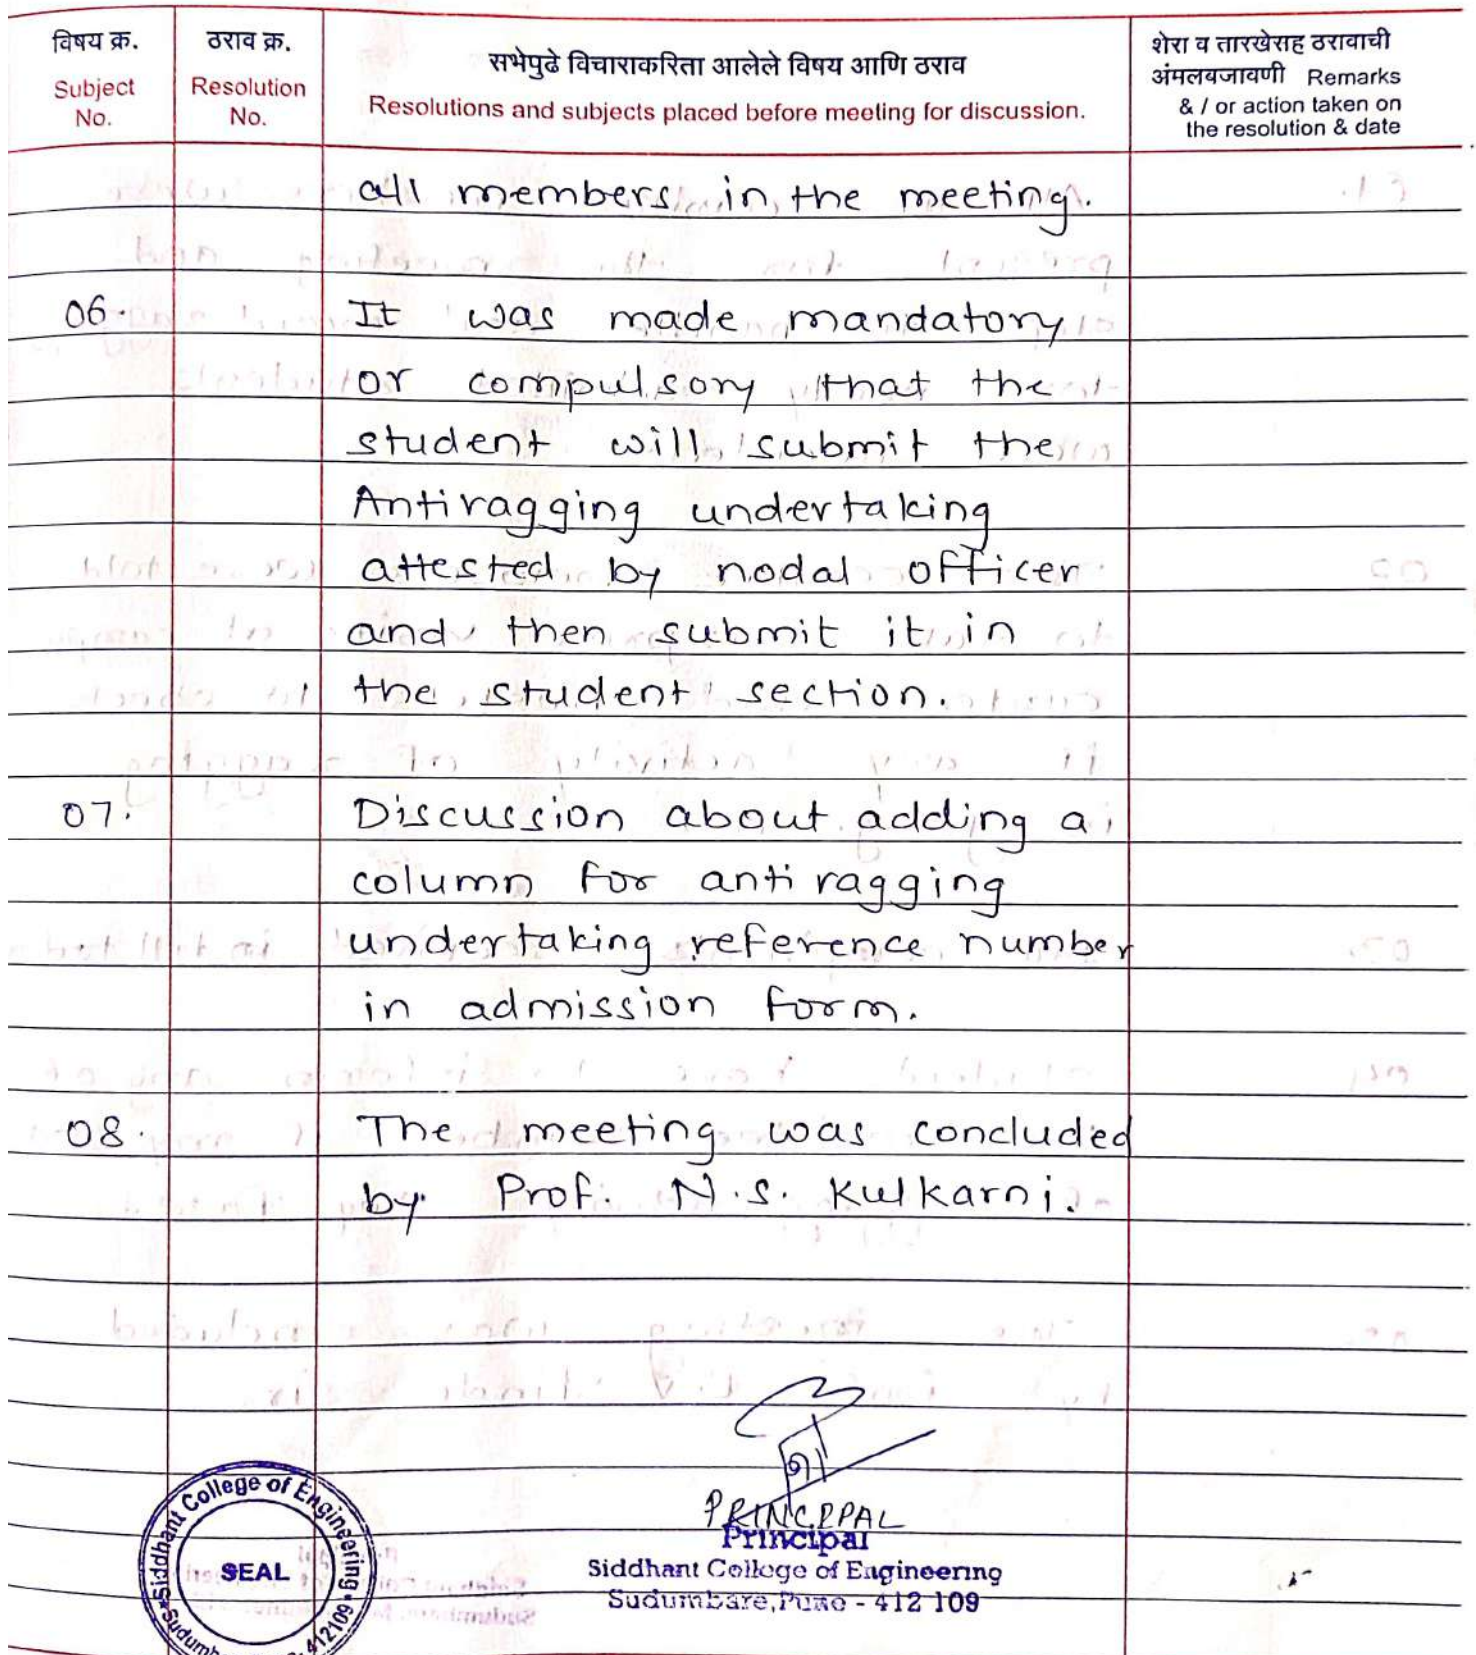 विषय क्र.
Subject
No.
ठराव क्र.
Resolution
No.
सभेपुढे विचाराकरिता आलेले विषय आणि ठराव
Resolutions and subjects placed before meeting for discussion.
शेरा व तारखेसह ठरावाची
अंमलबजावणी Remarks
& / or action taken on
the resolution & date
all members in the meeting.
06. It was made mandatory
or compulsory that the
student will submit the
Antiragging undertaking
attested by nodal officer
and then submit it in
the student section.
07. Discussion about adding a
column for anti ragging
undertaking reference number
in admission form.
08. The meeting was concluded
by Prof. N.S. Kulkarni.
PRINCIPAL
Principal
Siddhant College of Engineering
Sudumbare, Pune - 412 109
Siddhant College of Engineering
SEAL
412109